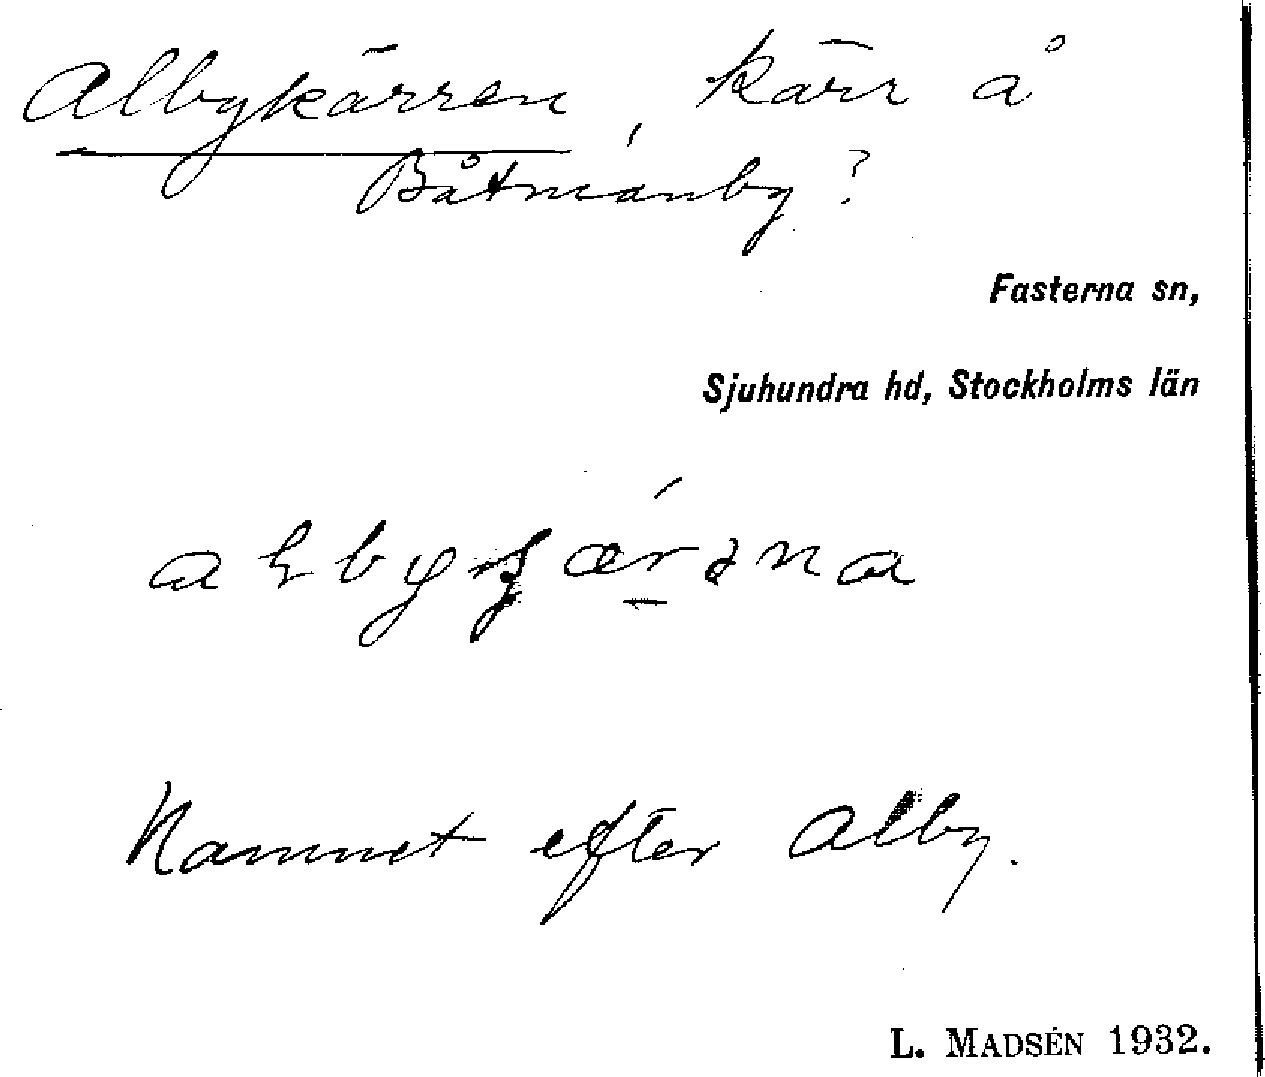 Albykärren, kärr å
Båtmanby?
Fasterna sn,
Sjuhundra hd, Stockholms län
Namnet efter Alby.
L. MADSÉN 1932.